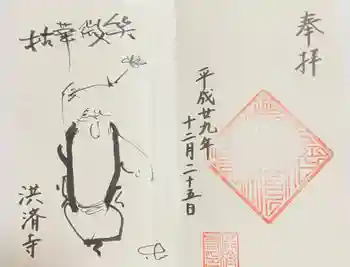 奉拝
平成廿九年
十二月二十五日
拈華微笑
洪済寺